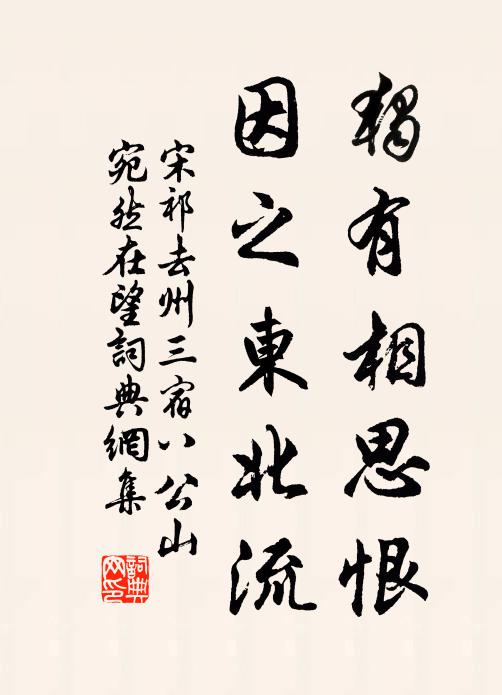 獨有相思恨
因之東北流
宋祁去州三宿八公山
宛然在望詞典網集
詞典網印